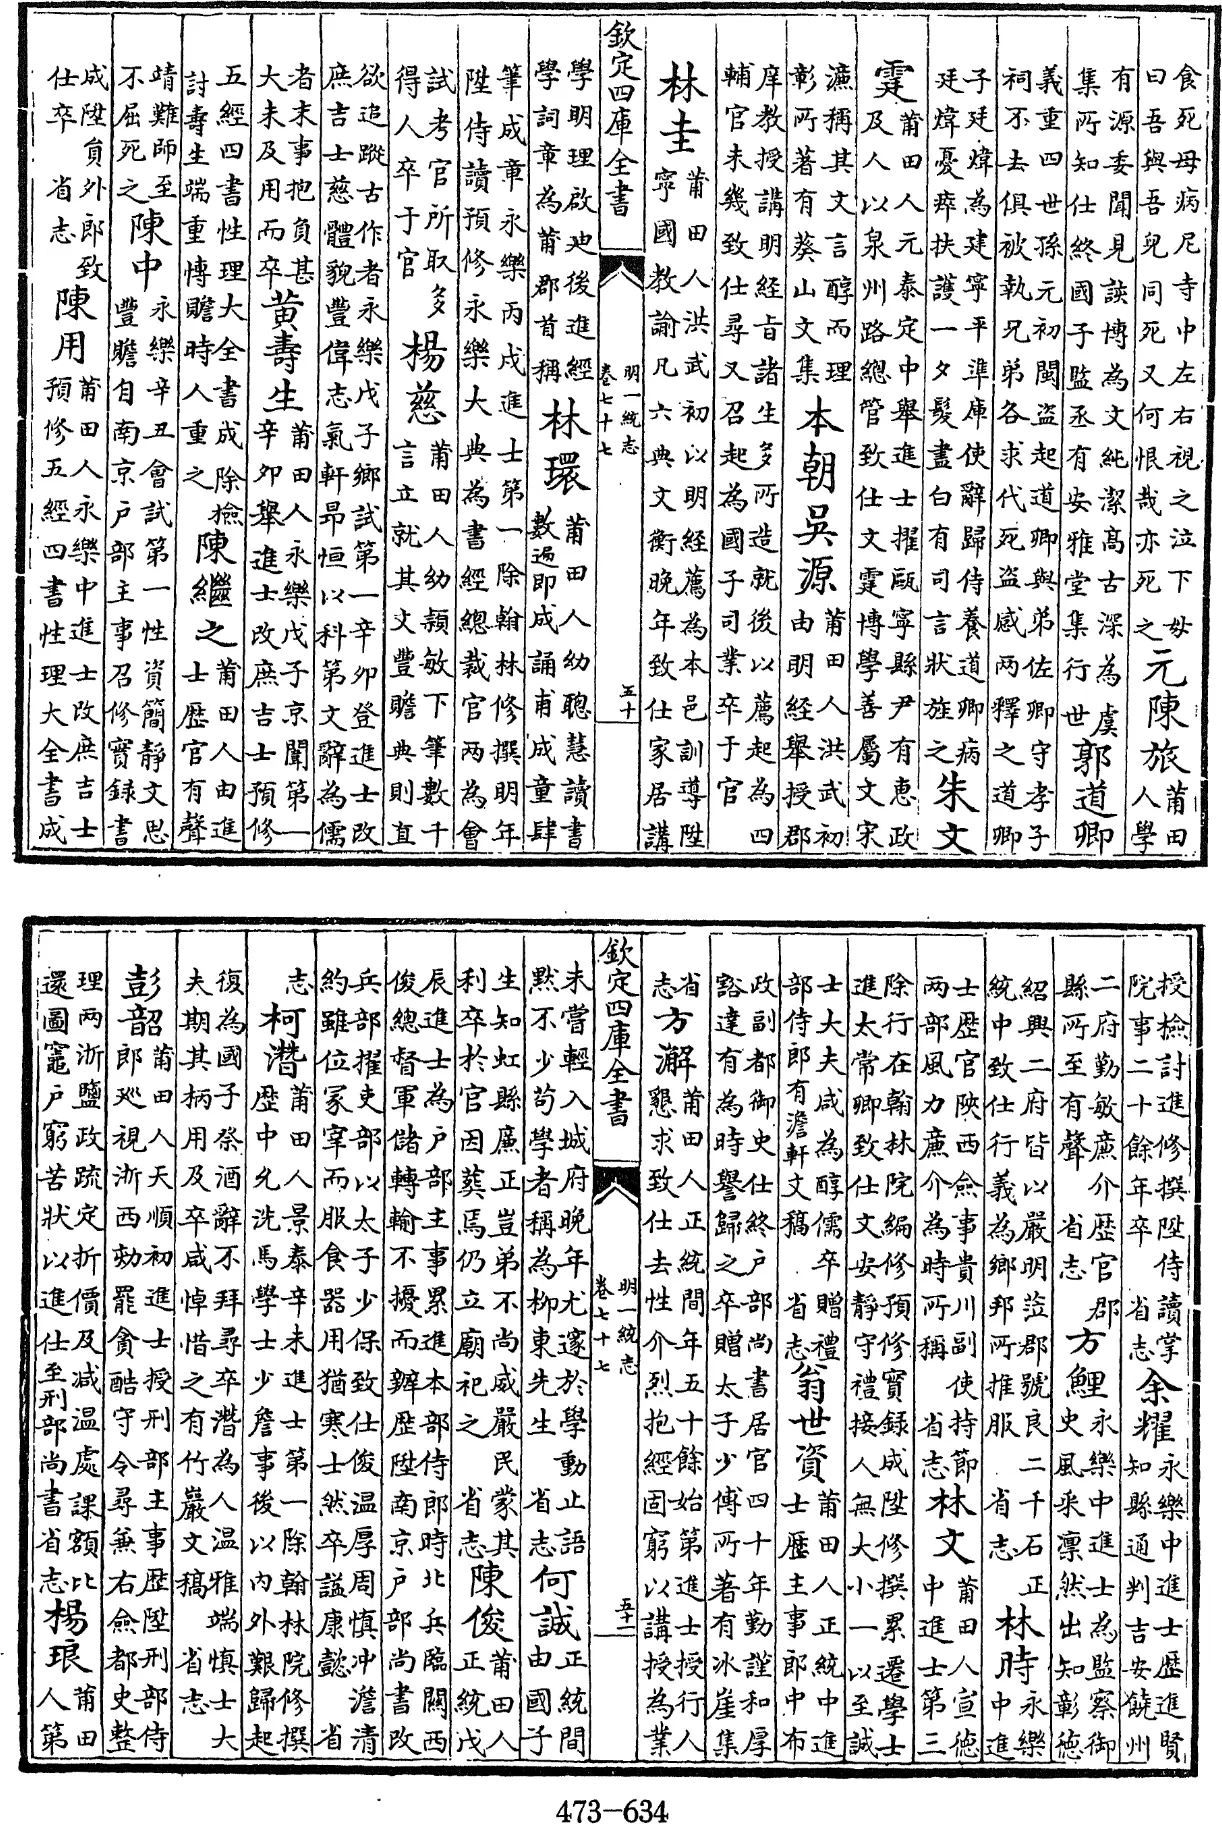 食死母病尼寺中左右視之泣下母曰吾與吾兒同死又何恨哉亦死之元陳旅莆田人學
有源委聞見談博為文純潔高古深為虞集所知仕終國子監丞有安雅堂集行世郭道卿
義重四世孫元初閩盗起道卿與弟佐卿守孝子祠不去俱被執兄弟各求代死盗感兩釋之道卿
子廷煒為建寧平準庫使辭歸侍養道卿病廷煒憂瘁扶護一夕髮盡白有司言狀旌之朱文
霆莆田人元泰定中舉進士擢甌寧縣尹有惠政及人以泉州路總管致仕文霆博學善屬文宋
濂稱其文言醇而理彰所著有葵山文集本朝吳源莆田人洪武初由明經舉授郡
庠教授講明經旨諸生多所造就後以薦起為四輔官未幾致仕尋又召起為國子司業卒于官
林圭莆田人洪武初以明經薦為本邑訓導陞寧國教諭凡六典文衡晚年致仕家居講
欽定四庫全書 明一統志卷七十七 五十
學明理啟廸後進經學詞章為莆郡首稱林環莆田人幼聰慧讀書數過即成誦甫成童肆
筆成章永樂丙戌進士第一除翰林修撰明年陞侍讀預修永樂大典為書經總裁官兩為會
試考官所取多得人卒于官楊慈莆田人幼頴敏下筆數千言立就其文豐贍典則直
欲追蹤古作者永樂戊子鄉試第一辛卯登進士改庶吉士慈體貌豐偉志氣軒昻恒以科第文辭為儒
者末事抱負甚大未及用而卒黄壽生莆田人永樂戊子京闈第一辛卯舉進士改庶吉士預修
五經四書性理大全書成除檢討壽生端重愽贍時人重之陳繼之莆田人由進士歴官有聲
靖難師至不屈死之陳中永樂辛丑會試第一性資簡靜文思豐贍自南京戶部主事召修實録書
成陞負外郎致仕卒 省志陳用莆田人永樂中進士改庶吉士預修五經四書性理大全書成
授檢討進修撰陞侍讀掌院事二十餘年卒 省志余耀永樂中進士歴進賢知縣通判吉安饒州
二府勤敏亷介歴官郡縣所至有聲 省志方鯉永樂中進士為監察御史風采凛然出知彰德
紹興二府皆以嚴明蒞郡號良二千石正統中致仕行義為鄉邦所推服 省志林時永樂中進
士歴官陜西僉事貴川副使持節兩部風力亷介為時所稱 省志林文莆田人宣德中進士第三
除行在翰林院編修預修實録成陞修撰累遷學士進太常卿致仕文安靜守禮接人無大小一以至誠
士大夫咸為醇儒卒贈禮部侍郎有澹軒文稿 省志翁世資莆田人正統中進士歴主事郎中布
政副都御史仕終戶部尚書居官四十年勤謹和厚豁達有為時譽歸之卒贈太子少傅所著有冰崖集
省志方澥莆田人正統間年五十餘始第進士授行人懇求致仕去性介烈抱經固窮以講授為業
欽定四庫全書 明一統志卷七十七 五十一
未嘗輕入城府晚年尤邃於學動止語默不少苟學者稱為柳東先生 省志何誠正統間由國子
生知虹縣亷正豈弟不尚威嚴民蒙其利卒於官因葬焉仍立廟祀之 省志陳俊莆田人正統戊
辰進士為戶部主事累進本部侍郎時北兵臨關西俊總督軍儲轉輸不擾而辦歴陞南京戶部尚書改
兵部擢吏部以太子少保致仕俊温厚周慎冲澹清約雖位冢宰而服食器用猶寒士然卒謚康懿 省
志柯潛莆田人景泰辛未進士第一除翰林院修撰歴中允洗馬學士少詹事後以内外艱歸起
復為國子祭酒辭不拜尋卒潛為人温雅端慎士大夫期其柄用及卒咸悼惜之有竹巖文稿 省志
彭韶莆田人天順初進士授刑部主事歴陞刑部侍郎廵視浙西劾罷貪酷守令尋兼右僉都史整
理兩浙鹽政疏定折價及减温處課額比還圖竈戶窮苦狀以進仕至刑部尚書省志楊琅莆田人第
473-634